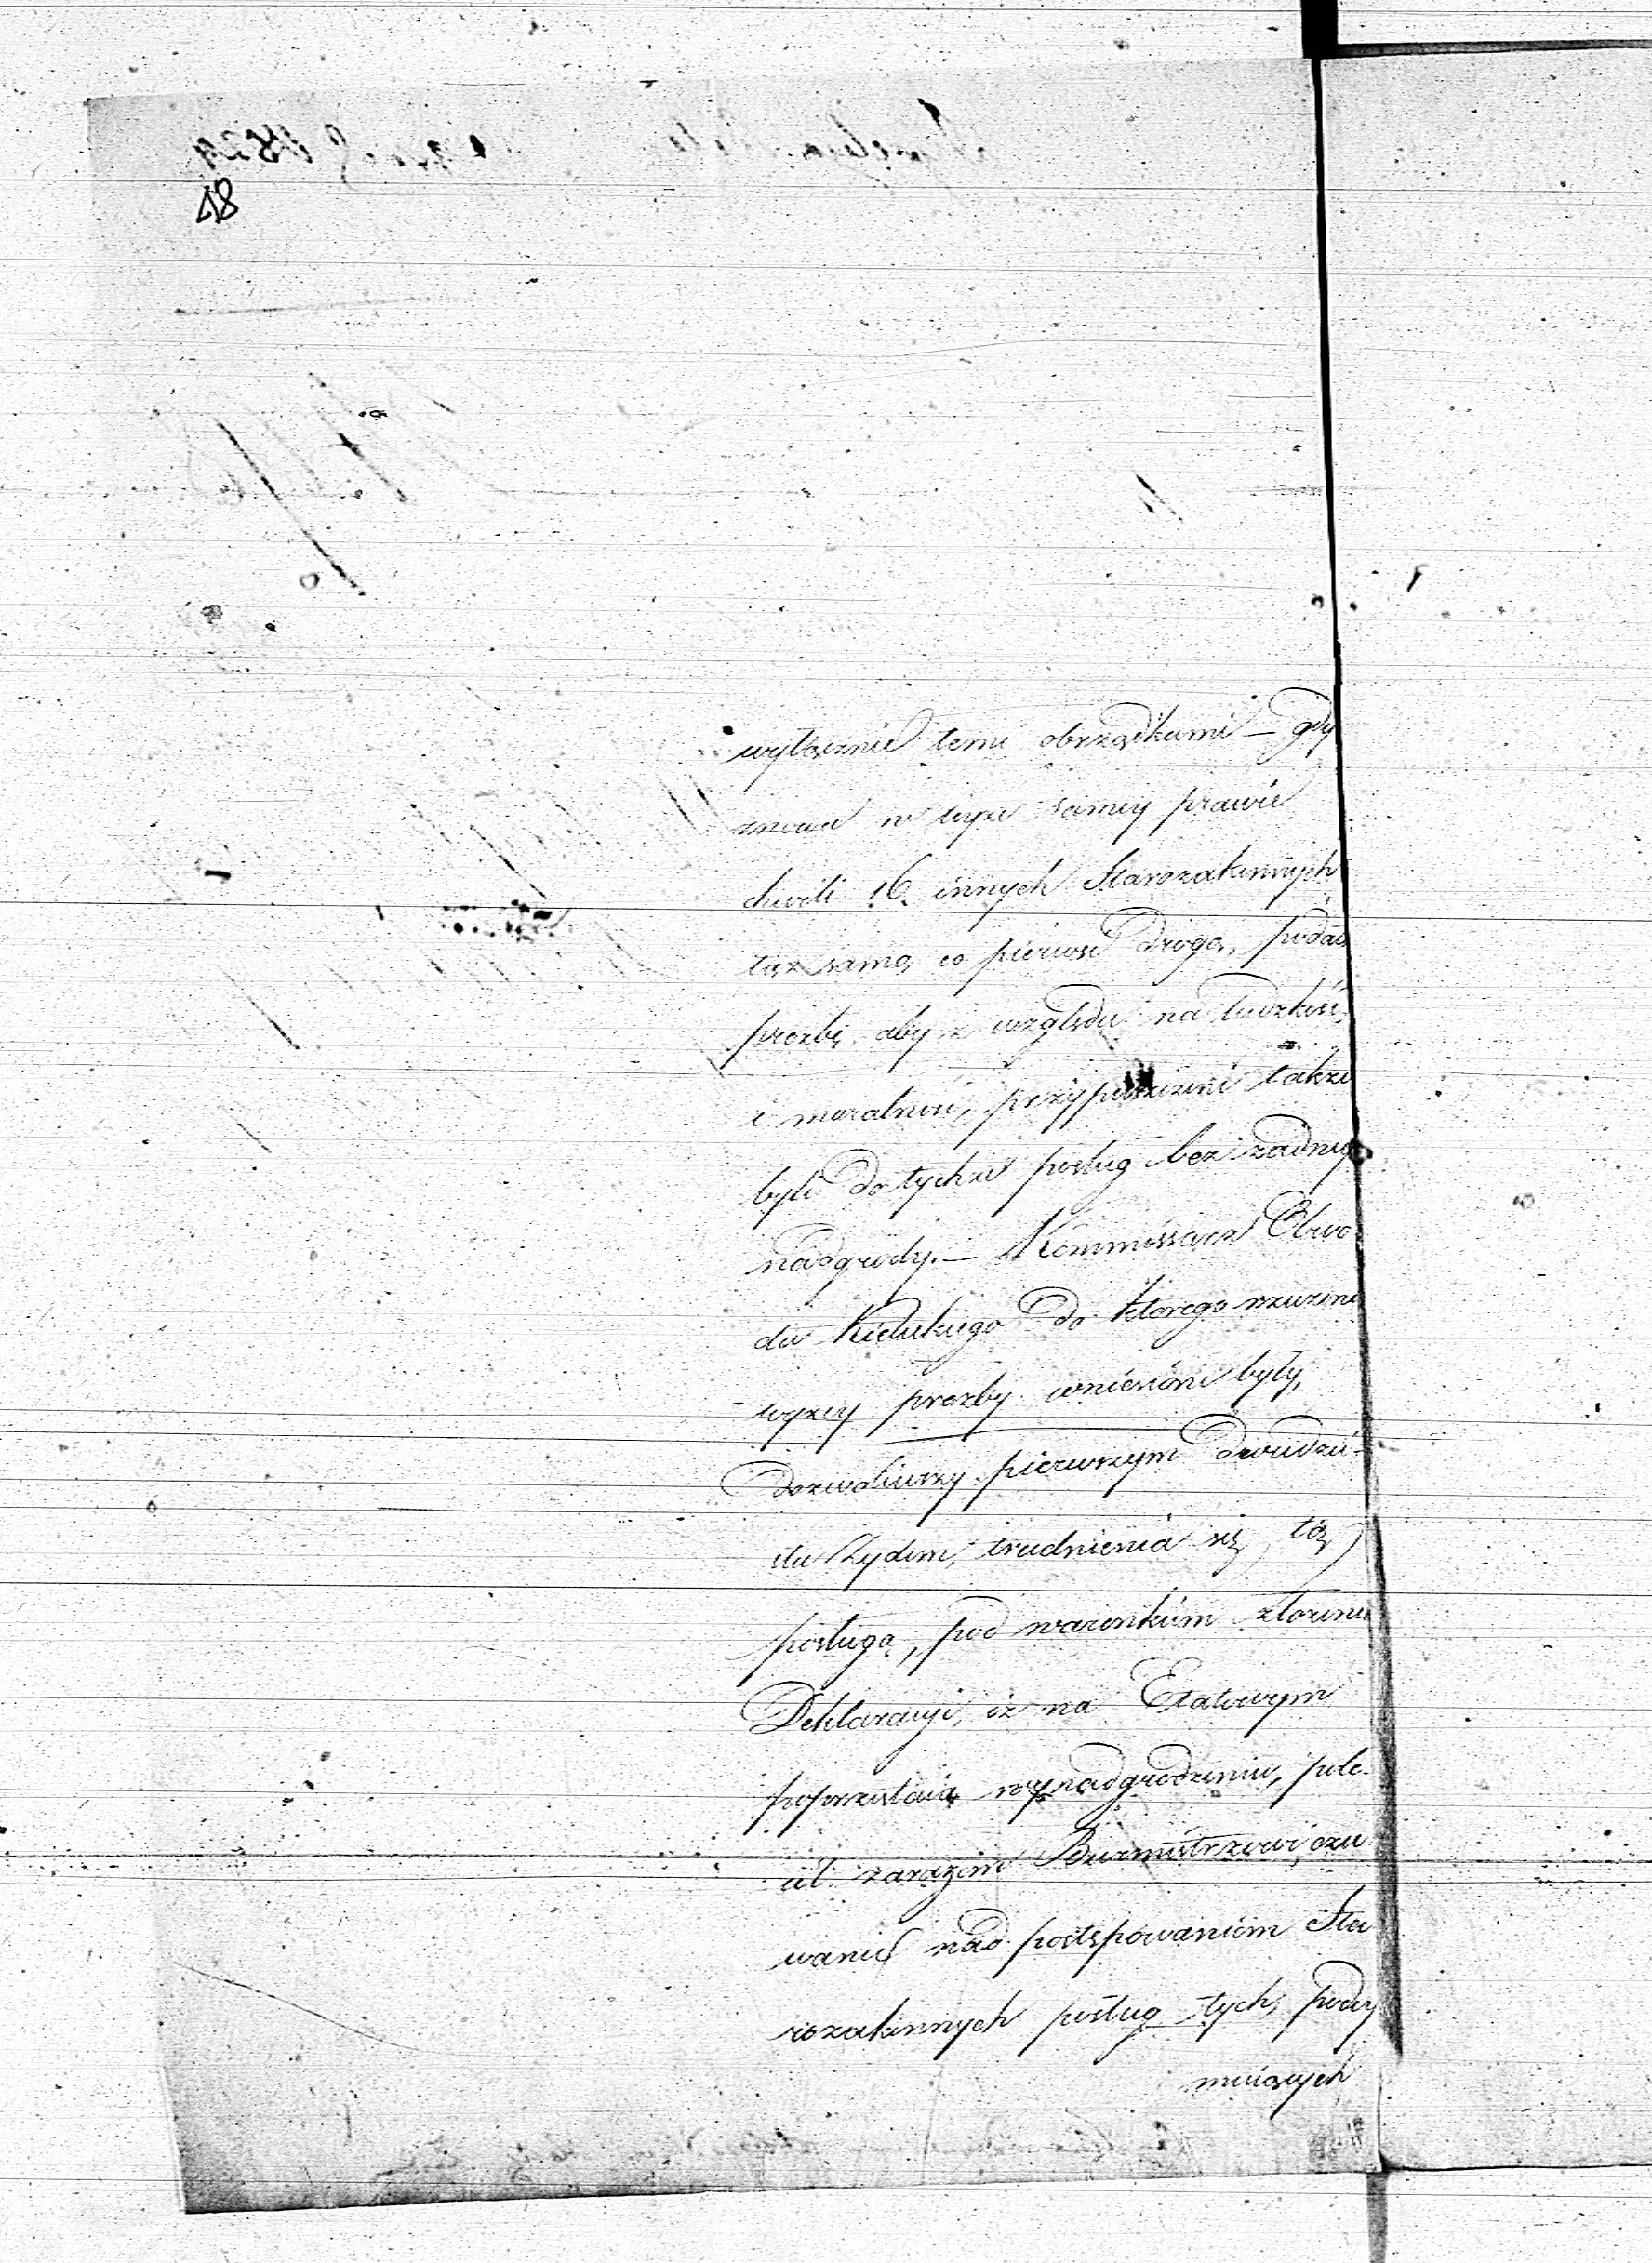 18
wyłącznie temi obrządkami – gdy
znowu w teyże samey prawie
chwili 16 innych Starozakonnych
tąż samą co pierwsi drogą, podało
prozbę aby z względu na ludzkość
i moralność, przypuszczeni także
byli do tychże posług bez żadney
nadgrody. – Kommissarz Obwo-
du Kieleckiego do którego rzeczone
wyżey prozby wniesione były,
dozwoliwszy pierwszym dwudzie-
stu Żydom, trudnienia się tą
posługą, pod warunkiem złożenia
Deklaracyi, iż na Etatowym
poprzestaią wynadgrodzeniu, pole-
cił zarazem Burmistrzowi czu
wanie nad postępowaniem Sta
rozakonnych posług tych, podey
muiących